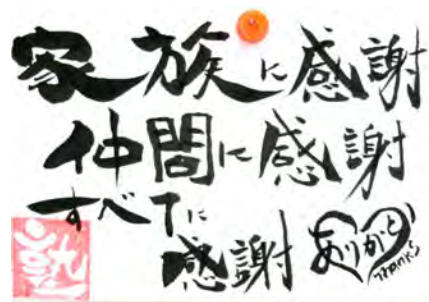 家族に感謝
仲間に感謝
すべてに
感謝
ありがとう
Thanks